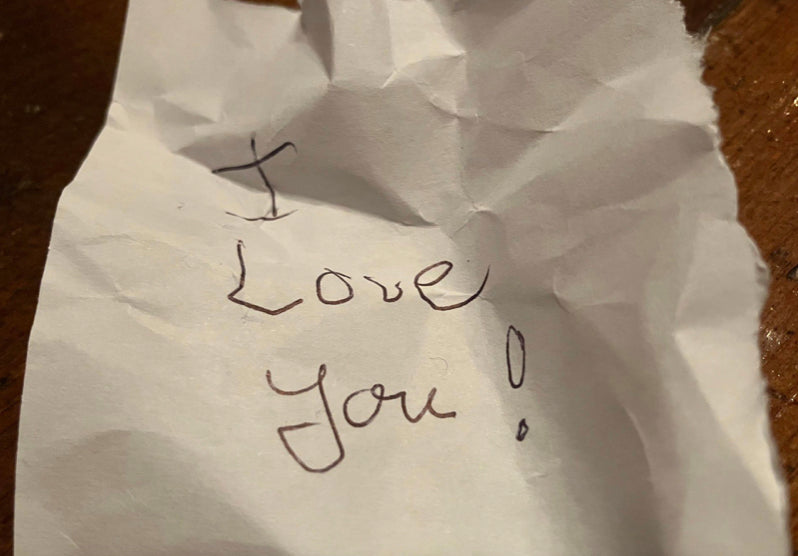 I
Love
you!